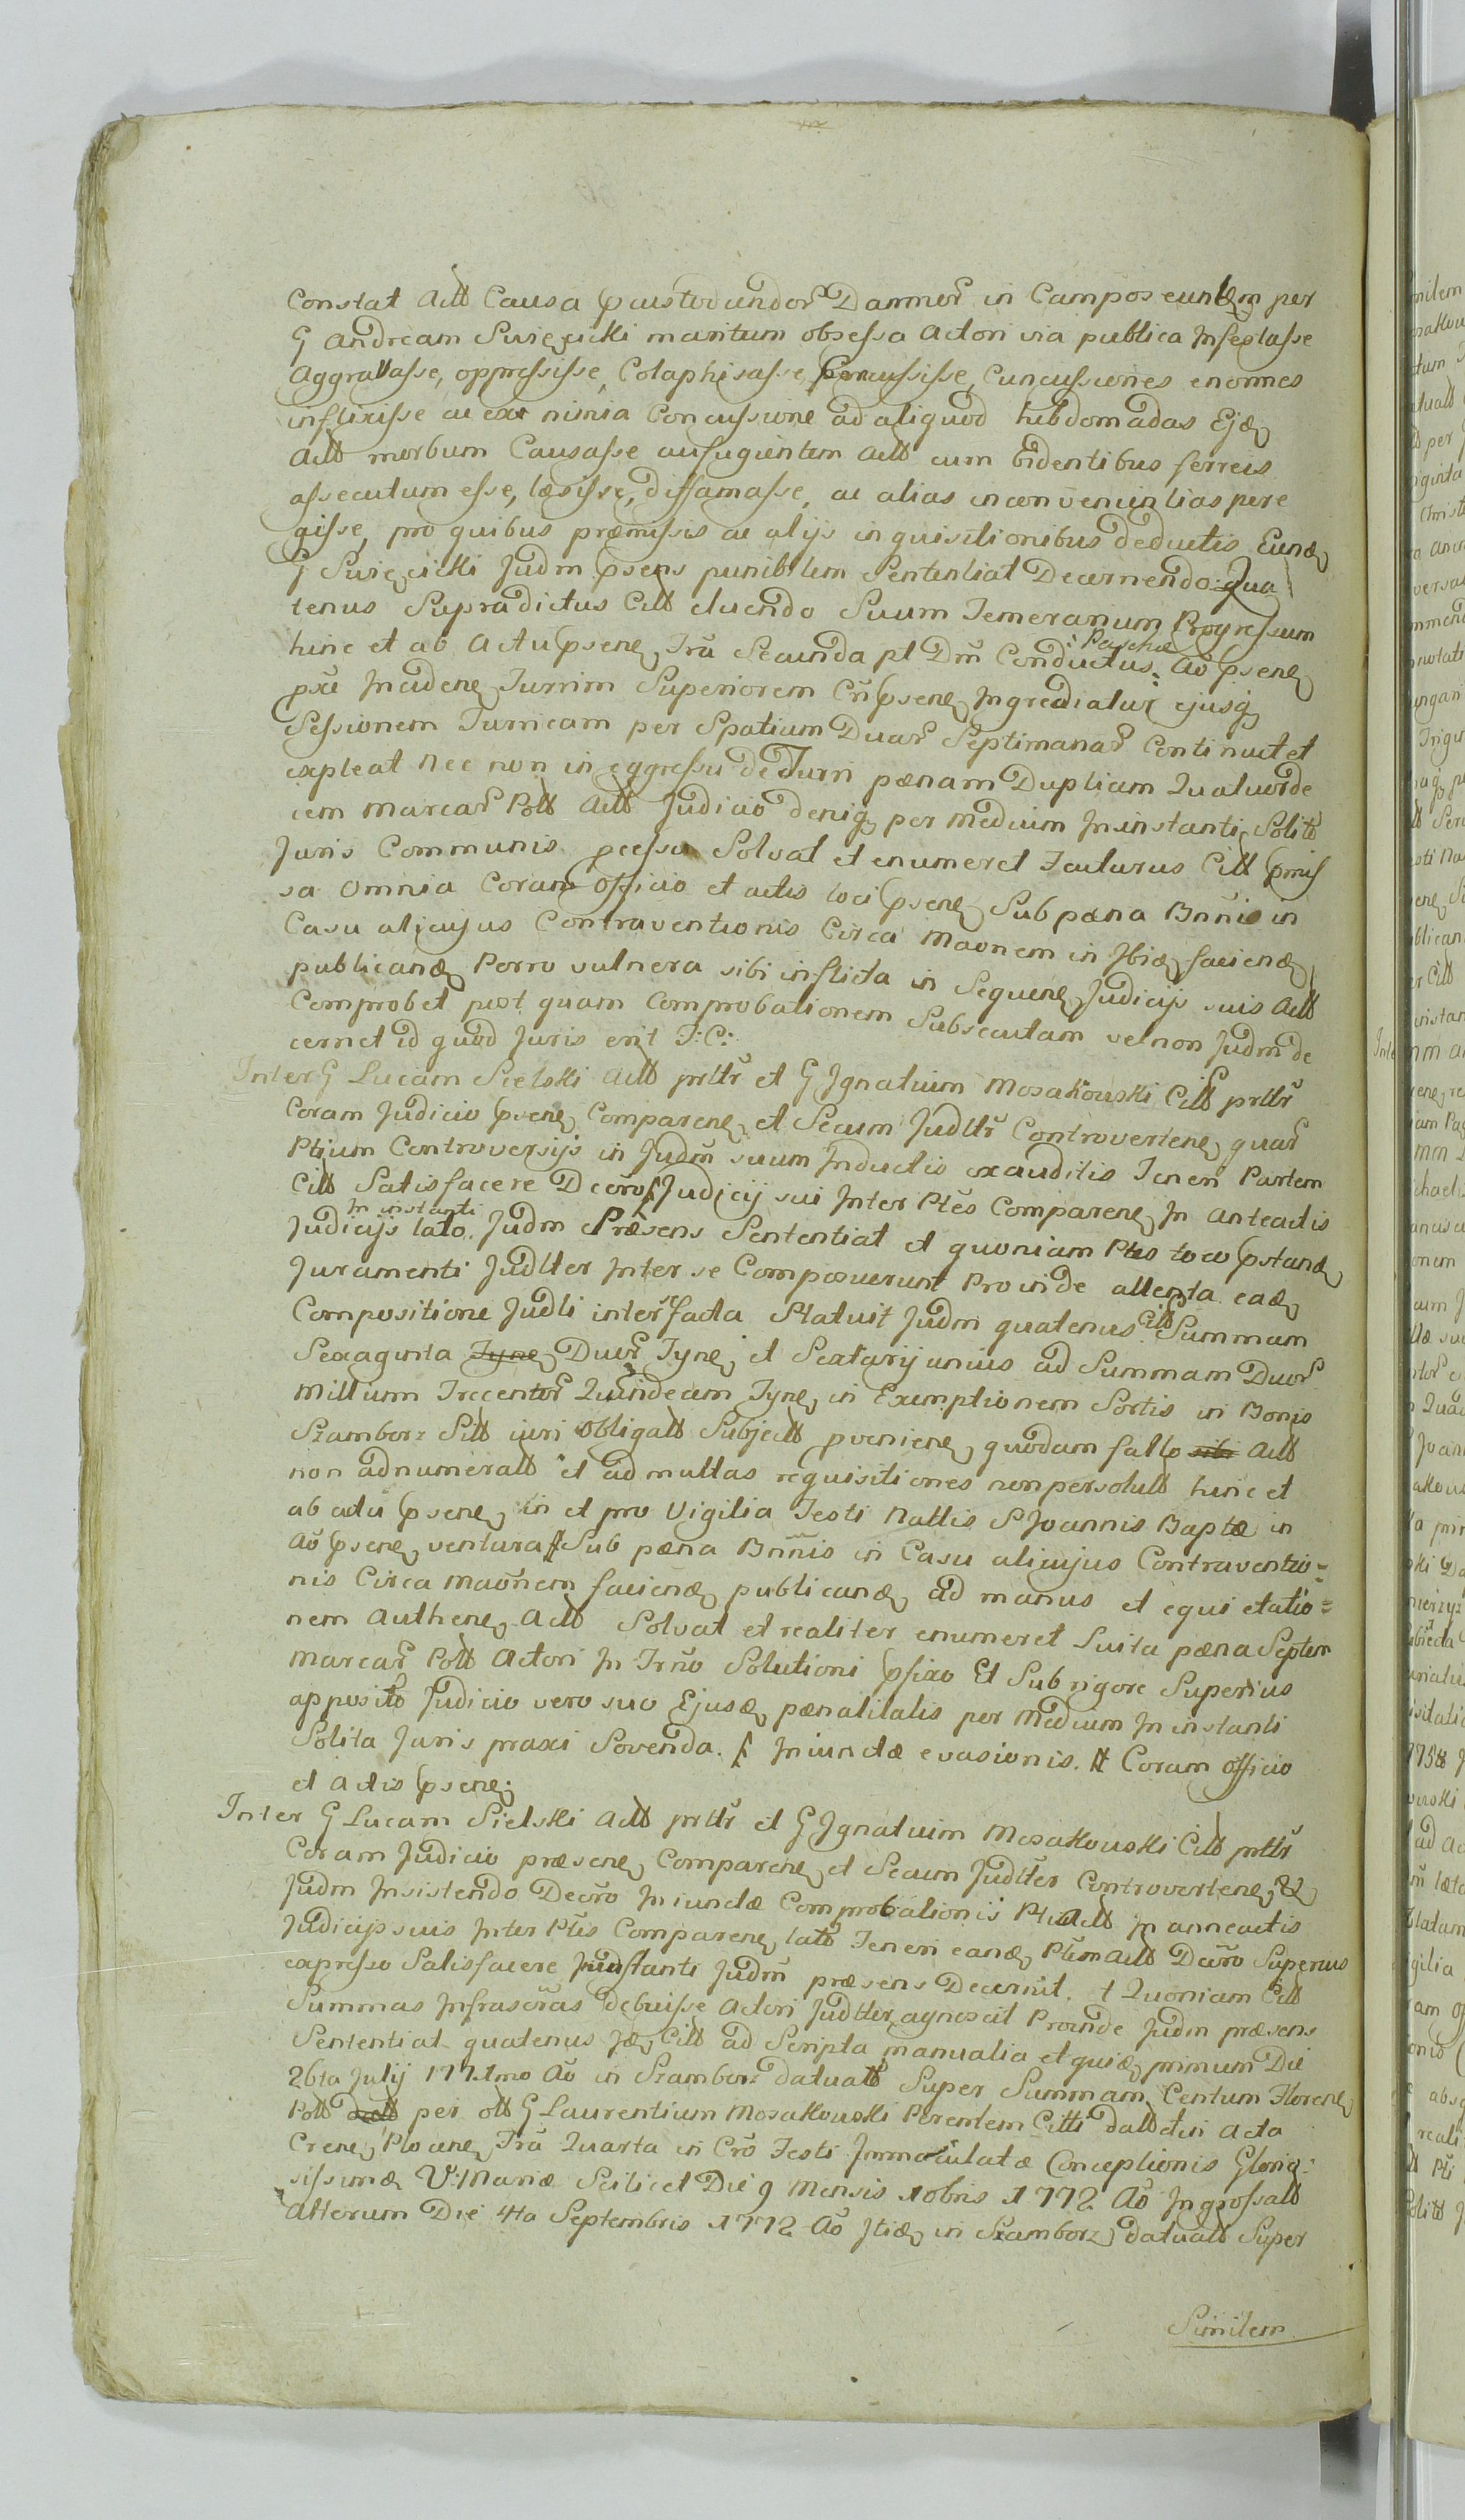 Constat Actt Causa custodiendor Damnor in Campos euntem per
G Andream Swięcicki maritum obsessa Actori via publica Insectasse
Aggravasse, oppressisse, Colaphisasse, percussisse, Concussiones enormes
inflixisse ac ex nimia Concussione ad aliquod hebdomadas Ejdę
Actt morbum Causasse aufugientem Actt cum bidentibus ferreis
assecutum esse, læsisse, diffamasse, ac alias inconvenientias pere
gisse, pro quibus præmissis ac alijs inquisitionibus deductis Eundę
G Swięcicki Judm psens punibilem Sententiat Decernendo: Qua
tenus Supradictus Citt eluendo Suum Temerarium Progressum
hinc et ab Actu psenę, Fra Secunda pt Dm Conductus Paschæ Ao psenę
pxe Incidenę Turrim Superiorem Crn psenę Ingrediatur ejusq
Sessionem Turricam per Spatium Duar Septimanar Continuet et
expleat nec non in eggressu de Turri pænam Duplicem Quatuorde
cem Marcar Poll Actt Judicio deniq per Medium In instanti Solito
Juris Communis pcessu Solvat et enumeret Facturus Citt pmis
sa omnia Coram Officio et actis loci psenę Sub pæna Bnnis in
Casu alicujus Contraventionis Circa Maonem in Ibidę faciendę
publicandę Porro vulnera sibi inflicta in Sequenę Judicijs suis Actt
Comprobet post quam Comprobationem Subsecutam vel non Judm de
cernet id quod Juris erit T: C:
Inter G Lucam Sielski Actt prttr et G Ignatium Mosakowski Citt prttr
Coram Judicio psenę Comparenę et Secum Judttr Controvertenę quar
Ptium Controversijs in Judm suum Inductis exauditis Teneri Partem
Citt Satisfacere Decro Judicij sui Inter Ptes Comparenę In anteactis
Judicijs lato In instanti Judm Præsens Sententiat et quoniam Ptes loco pstandę
Juramenti Judtter Inter se Composuerunt Proinde attenta eadę
Compositione Judli inter se facta Statuit Judm quatenus Citt Summam
Sexaginta Tynę Duor Tynę et Sextarij unius ad Summam Duor
Millium Trecentor Quindecim Tynę in Exemptionem Sortis in Bonis
Szamborz Sitt iuri obligatt Subjectt pvenienę quodam fallo sibi Actt
non adnumeratt et ad multas requisitiones non persolutt hinc et
ab actu psenę in et pro Vigilia Festi Nattis S Joannis Baptæ in
Ao psenę ventura Sub pæna Bnnis in Casu alicujus Contraventio=
nis Circa Maonem faciendę publicandę ad manus et equietatio=
nem Authenę Actt Solvat et realiter enumeret Luita pæna Septem
Marcar Poll Actori In Trno Solutioni pfixo Et Sub rigore Superius
apposito Judicio vero suo Ejusdę pænalitatis per Medium In instanti
Solita Juris praxi Sovenda. Iniunctæ evasionis. Coram officio
et Actis psenę
Inter G Lucam Sielski Actt prttr et G Ignatium Mosakowski Citt prttr
Coram Judicio præsenę Comparenę et Secum Judtter Controvertenę
Judm Insistendo Decro Iniunctæ Comprobationis Pti Actt In anneactis
Judicijs suis Inter Ptes Comparenę lato Teneri eandę Ptem Actt Decro Superius
expresso Satisfacere In instanti Judm præsens Decernit. Quoniam Citt
Summas Infrascras debuisse Actori Judtter agnoscit Proinde Judm præsens
Sententiat quatenus Idę Citt ad Scripta manualia et quidę primum Die
26ta Julij 1771mo Ao in Szamborz datuatt Super Summam Centum Florenę
Poll per ott G Laurentium Mosakowski Parentem Citti datt et in Acta
Crenę Plocenę Fra Quarta in Cro Festi Immaculatæ Conceptionis Glorio:
sissimæ V: Mariæ Scilicet Die 9 Mensis Xobris 1772 Ao Ingrossatt
Alterum Die 4ta Septembris 1772 Ao Itidę in Szamborz datuatt Super
Similem